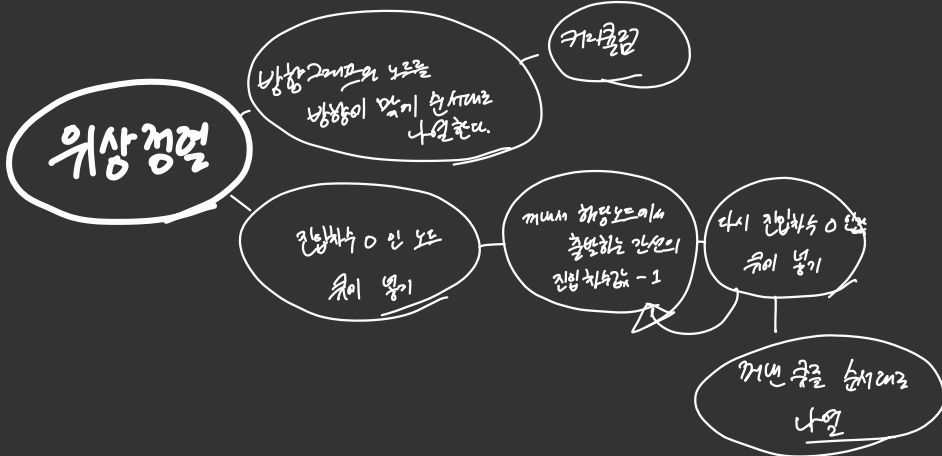 위상정렬
방향그래프의 노드를
방향이 맞게 순서대로
나열한다.
커리큘럼
진입차수 0 인 노드
큐에 넣기
꺼내서 해당노드에서
출발하는 간선의
진입차수값 - 1
다시 진입차수 0
큐에 넣기
꺼낸 순서대로
나열